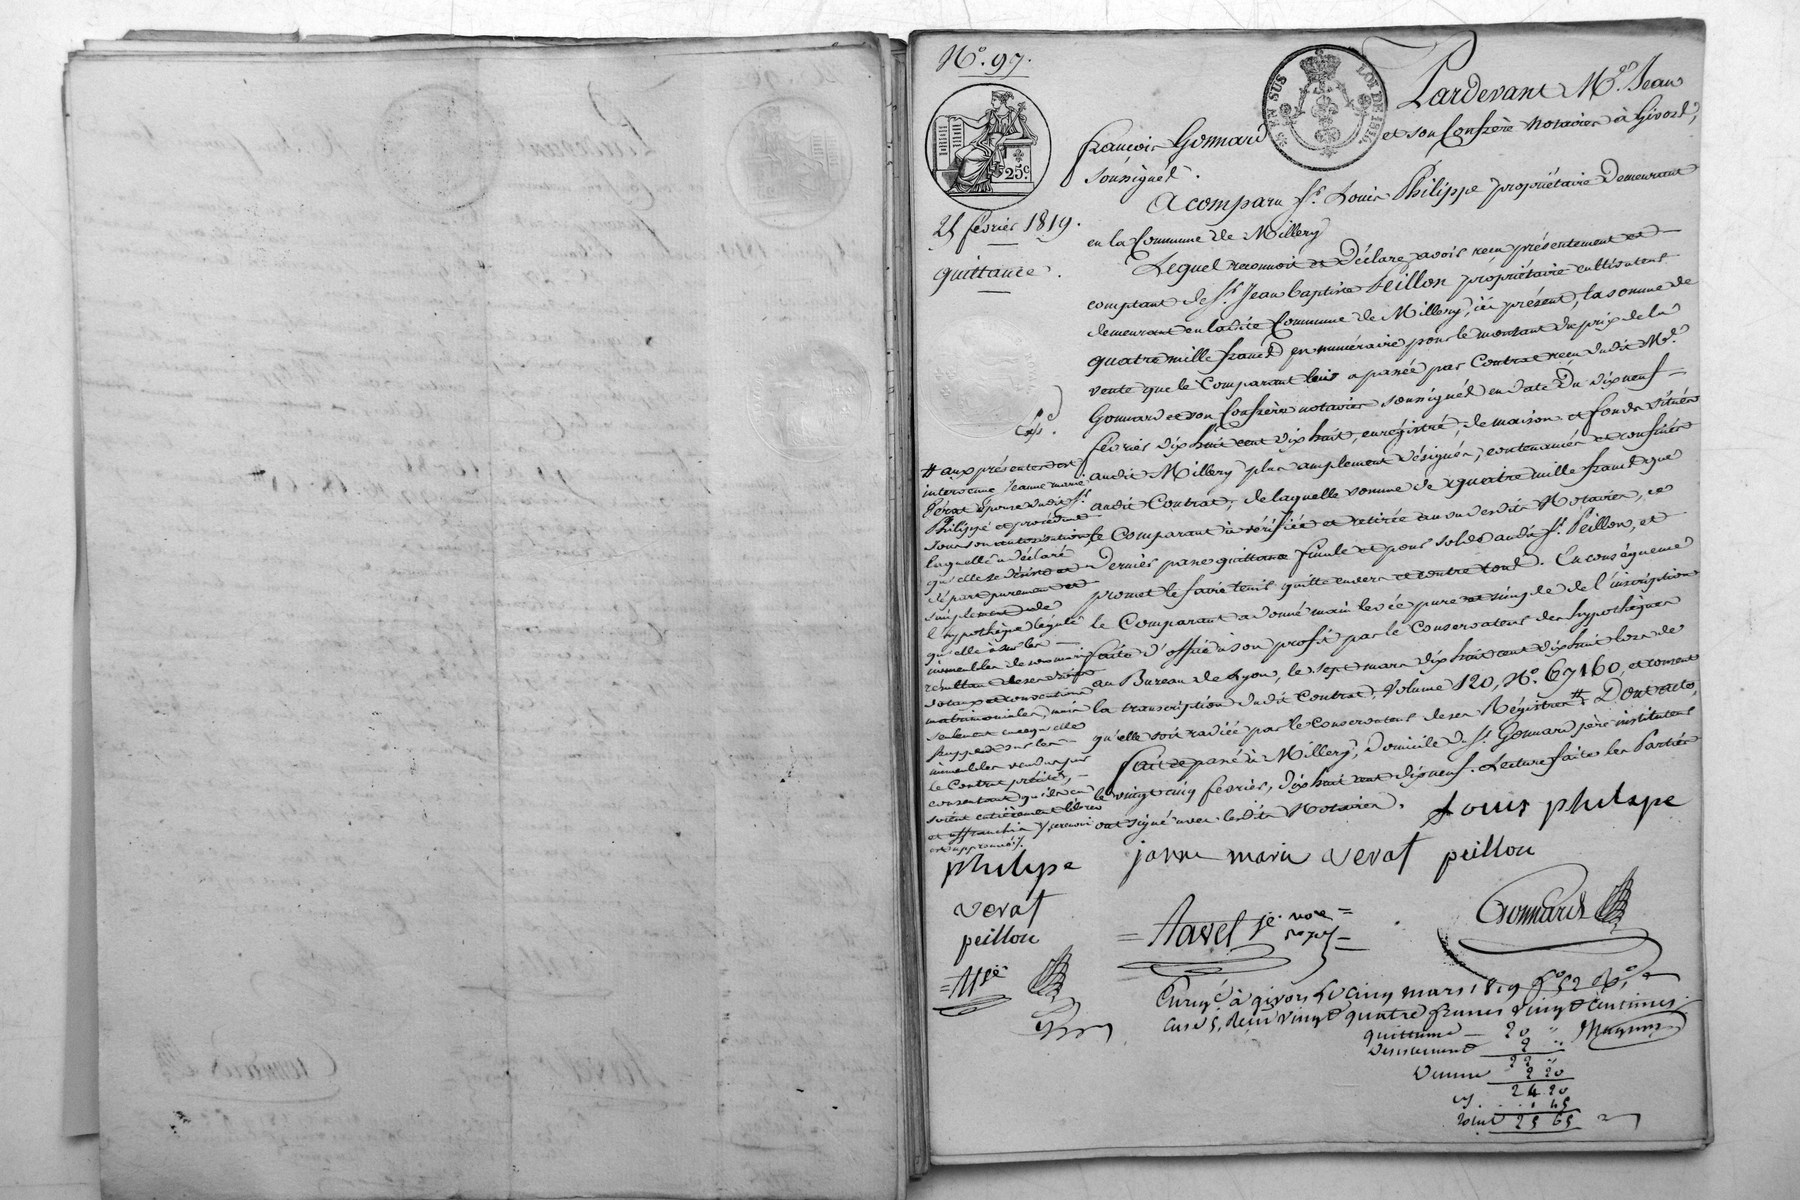 N°. 97.
25.c
EN SUS
LOI DE 1816
25 février 1819.
quittance.
Pardevant M.es Jean
françois Gonnard et son Confrère Notaires à Givors,
soussignés.
A comparu Sr. Louis Philippe propriétaire demeurant
en la Commune de Millery
Lequel reconnoit et Déclare avoir reçu présentement et
comptant de Sr. Jean baptiste Peillon propriétaire cultivateur
demeurant en ladite Commune de Millery, ici présent, la somme de
quatre mille francs en numéraire pour le montant du prix de la
vente que le Comparant lui a passée par Contrat reçu dudit Me.
Gonnard et son Confrère notaires soussignés en date du dix neuf
février dix huit cent dix huit, enregistré, de maison et fonds situés
audit Millery plus amplement désignés, contenances et confinés
audit Contrat, de laquelle somme de quatre mille francs que
le Comparant a vérifiée et retirée au vu desdits Notaires, ce
dernier passe quittance finale et pour solde audit Sr. Peillon, et
promet le faire tenir quitte envers et contre tous. En conséquence
le Comparant a donné main levée pure et simple de l'inscription
faite d'office à son profit par le Conservateur des hypothèques
au Bureau de Lyon, le sept mars dix huit cent dix huit lors de
la transcription dudit Contrat, Volume 120, N°. 67160, et consent
qu'elle soit radiée par le Conservateur de ses Régistres # Dont acte,
fait et passé à Millery, domicile de Sr. Gonnard père instituteur
le vingt cinq février, dix huit cent dix neuf. Lecture faite les Parties
ont signé avec lesdits Notaires.
# aux présentes est
intervenue Jeanne marie
Vérat épouse dudit Sr.
Philippe et procédant
sous son autorisation
laquelle a déclaré
qu'elle se désiste et
départ purement et
simplement de
l'hypothèque légale
qu'elle a sur les
immeubles de son mari
résultant de ses droits
dotaux et conventions
matrimoniales, mais
seulement en ce qu'elle
frappe sur les
immeubles vendus par
le Contrat précité,
consentant qu'ils en
soient entièrement libres
et affranchis, / renvoi
approuvé /.
Louis philipe
philipe janne marie verat peillon
verat
peillon
Navel je. nore
Gonnard
Enregé. à givors le cinq mars 1819 fo. 52 Ro.
case 5, Reçu vingt quatre francs vingt centimes.
quittance 20 "
Désistement 2 "
22 "
Dixme 2 20
24 20
1 45
Total 25 65